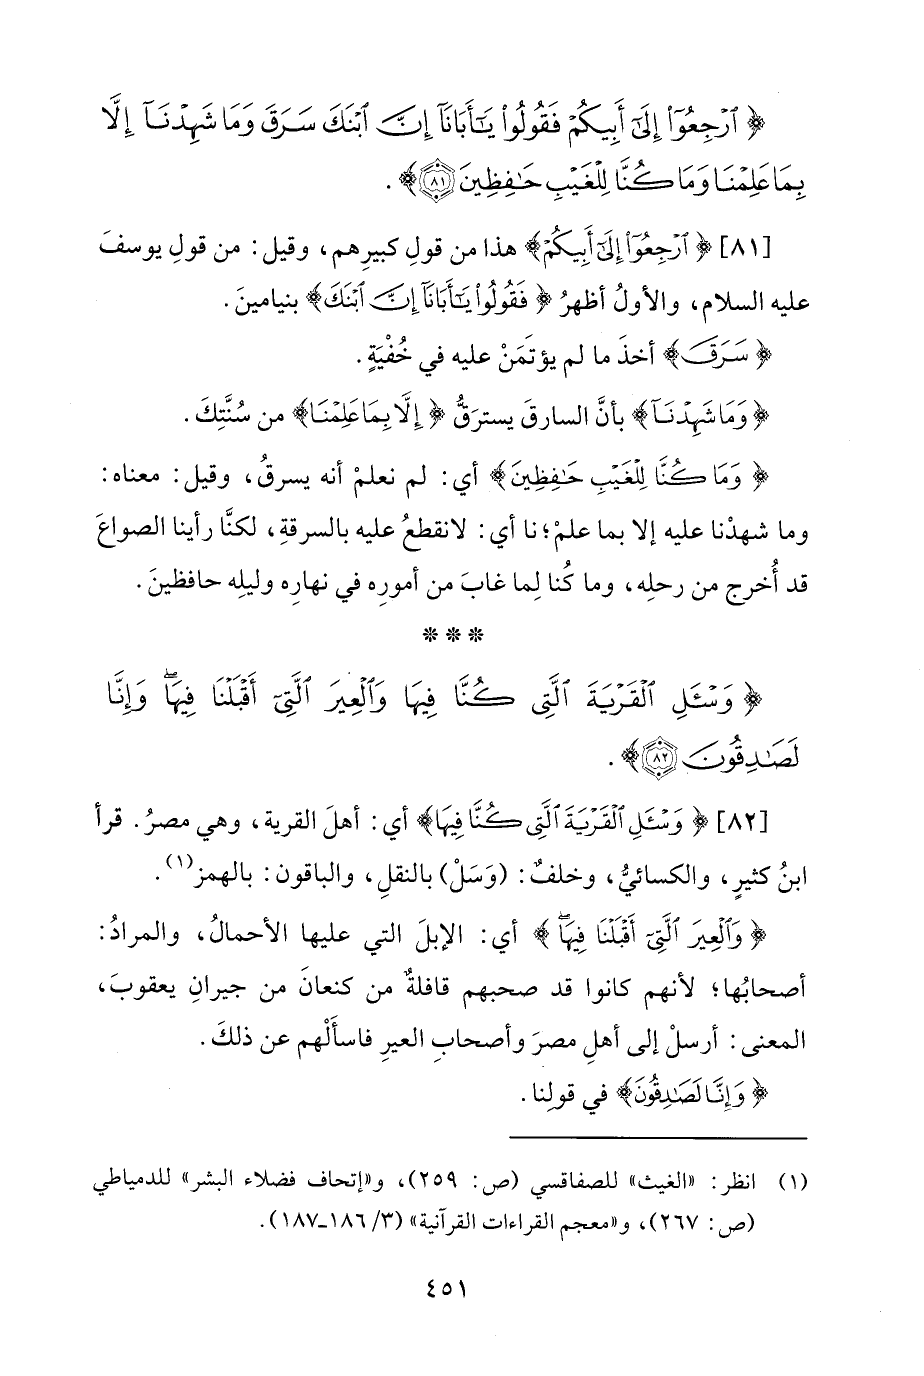 ﴿ ٱرْجِعُوٓا۟ إِلَىٰٓ أَبِيكُمْ فَقُولُوا۟ يَـٰٓأَبَانَآ إِنَّ ٱبْنَكَ سَرَقَ وَمَا شَهِدْنَآ إِلَّا
بِمَا عَلِمْنَا وَمَا كُنَّا لِلْغَيْبِ حَـٰفِظِينَ ٨١ ﴾ .
[٨١] ﴿ ٱرْجِعُوٓا۟ إِلَىٰٓ أَبِيكُمْ ﴾ هذا من قولِ كبيرِهم، وقيل: من قولِ يوسفَ
عليه السلام، والأولُ أظهرُ ﴿ فَقُولُوا۟ يَـٰٓأَبَانَآ إِنَّ ٱبْنَكَ ﴾ بنيامينَ.
﴿ سَرَقَ ﴾ أخذَ ما لم يؤتَمَنْ عليه في خُفْيَةٍ.
﴿ وَمَا شَهِدْنَآ ﴾ بأنَّ السارقَ يسترَقُّ ﴿ إِلَّا بِمَا عَلِمْنَا ﴾ من سُنَّتِكَ.
﴿ وَمَا كُنَّا لِلْغَيْبِ حَـٰفِظِينَ ﴾ أي: لم نعلمْ أنه يسرقُ، وقيل: معناه:
وما شهدْنا عليه إلا بما علمْ؛نا أي: لانقطعُ عليه بالسرقةِ، لكنَّا رأينا الصواعَ
قد أُخرج من رحلِه، وما كُنا لِما غابَ من أمورِه في نهارِه وليلِه حافظينَ.
***
﴿ وَسْـَٔلِ ٱلْقَرْيَةَ ٱلَّتِى كُنَّا فِيهَا وَٱلْعِيرَ ٱلَّتِىٓ أَقْبَلْنَا فِيهَا ۖ وَإِنَّا
لَصَـٰدِقُونَ ٨٢ ﴾ .
[٨٢] ﴿ وَسْـَٔلِ ٱلْقَرْيَةَ ٱلَّتِى كُنَّا فِيهَا ﴾ أي: أهلَ القرية، وهي مصرُ. قرأ
ابنُ كثيرٍ، والكسائيُّ، وخلفٌ: (وَسَلْ) بالنقلِ، والباقون: بالهمزِ(١).
﴿ وَٱلْعِيرَ ٱلَّتِىٓ أَقْبَلْنَا فِيهَا ۖ ﴾ أي: الإبلَ التي عليها الأحمالُ، والمرادُ:
أصحابُها؛ لأنهم كانوا قد صحبهم قافلةٌ من كنعانَ من جيرانِ يعقوبَ،
المعنى: أرسلْ إلى أهلِ مصرَ وأصحابِ العيرِ فاسألْهم عن ذلكَ.
﴿ وَإِنَّا لَصَـٰدِقُونَ ﴾ في قولِنا.
(١) انظر: «الغيث» للصفاقسي (ص: ٢٥٩)، و«إتحاف فضلاء البشر» للدمياطي
(ص: ٢٦٧)، و«معجم القراءات القرآنية» (٣/ ١٨٦-١٨٧).
٤٥١